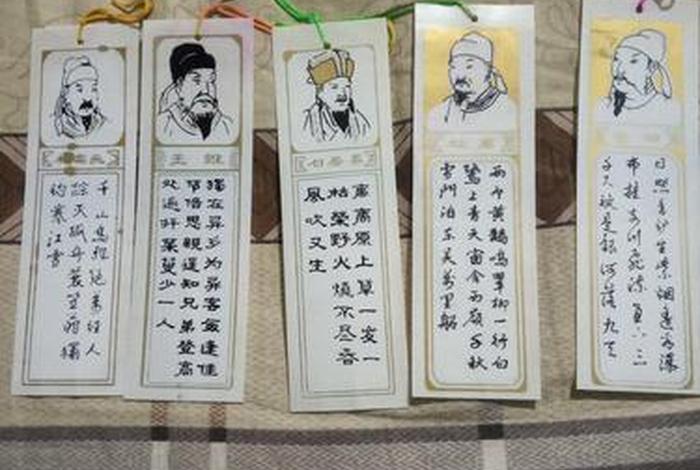 王維
獨在异乡为异客每逢佳
節倍思親遥知兄弟登高
处遍插茱萸少一人
千山鸟飛绝萬径人
踪灭孤舟蓑笠翁獨
钓寒江雪
白居易
离离原上草一岁一
枯榮野火燒不尽春
風吹又生
两个黄鹂鳴翠柳一行白
鹭上青天窗含西嶺千秋
雪門泊东吴萬里船
日照香炉生紫烟遥看瀑
布挂前川飛流直下三
千尺疑是银河落九天